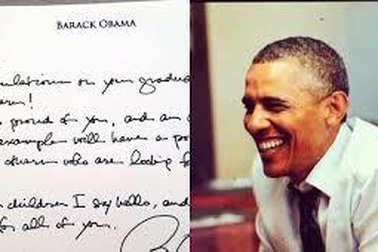 BARACK OBAMA
on your
!
proud of you, and am
example will have a
others who are looking
children I say hello, and
for all of you.